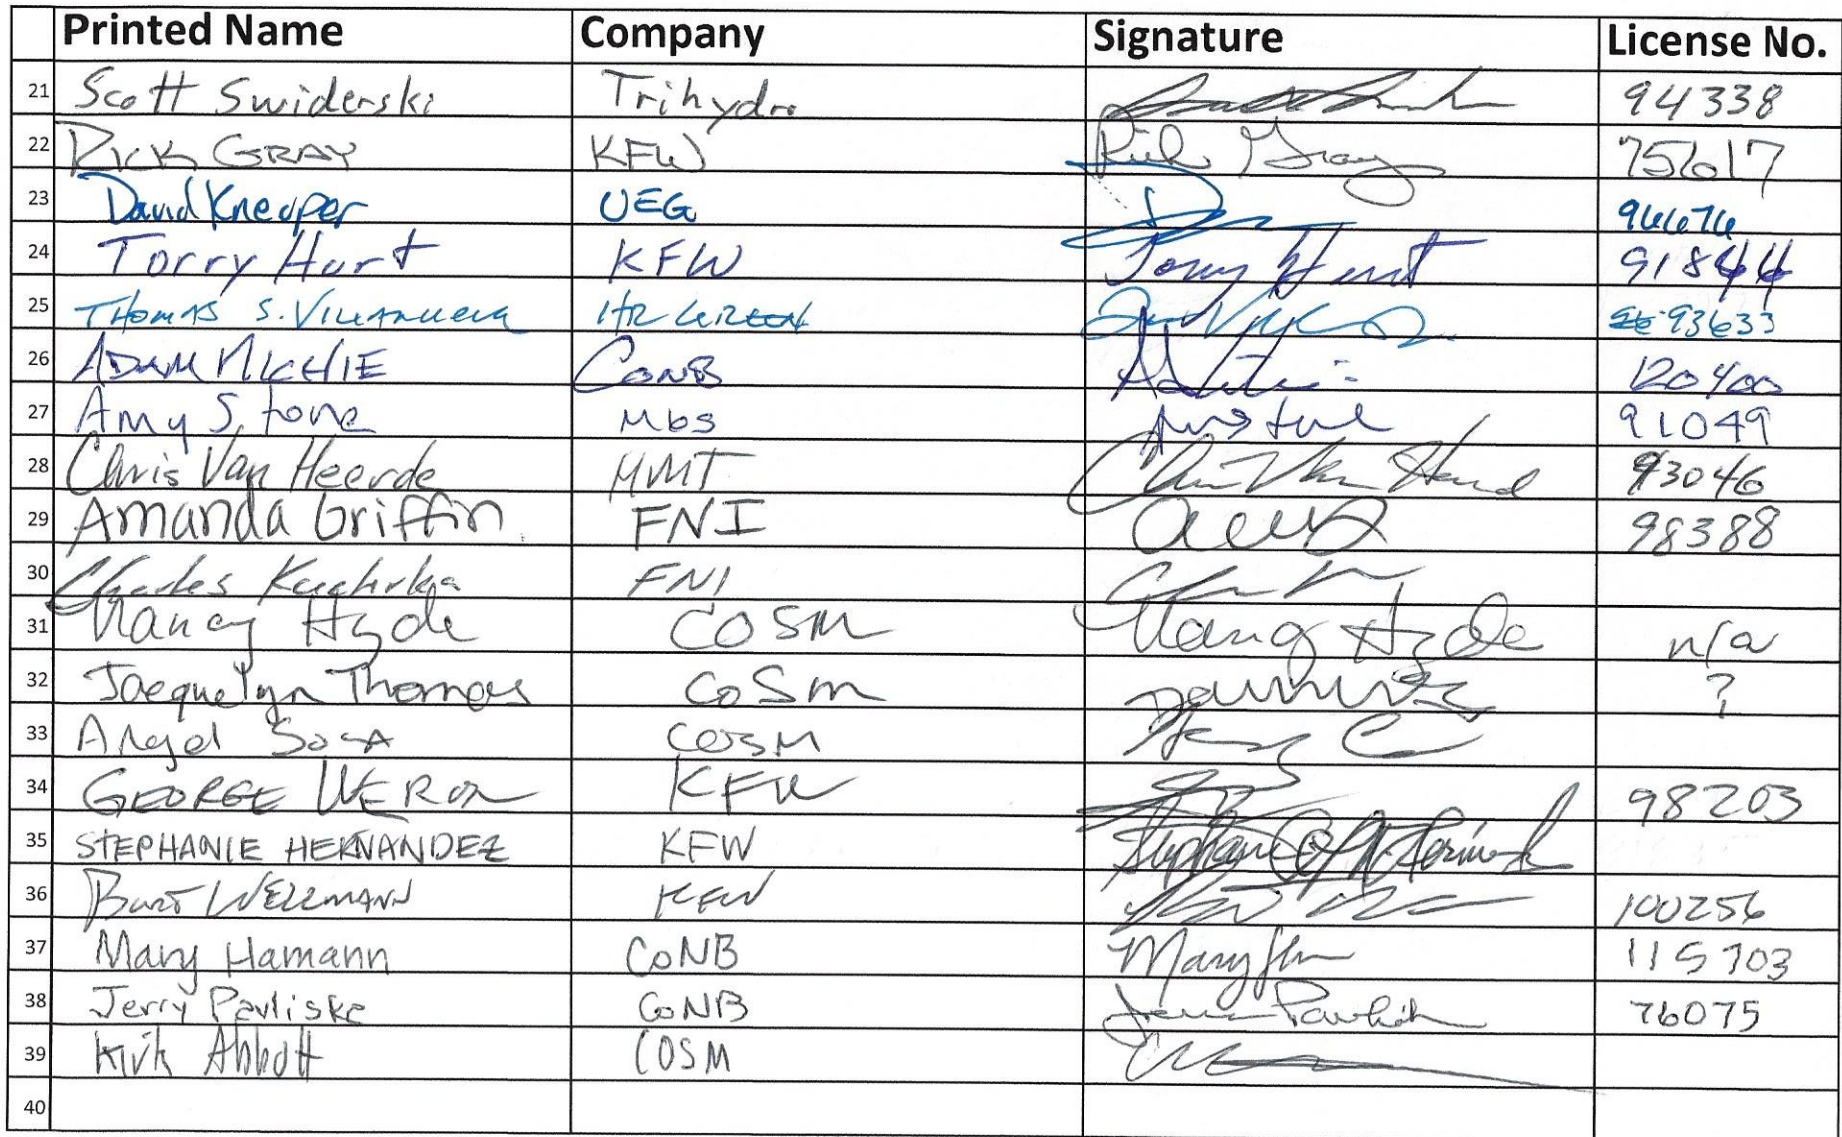 Printed Name Company Signature License No.
21 Scott Swiderski Trihydro 94338
22 Rick GRAY KFW Rick Gray 75617
23 David Kneuper UEG 96676
24 Torry Hurt KFW Torry Hurt 91844
25 THOMAS S. VILLANUEVA HR GREEN 93633
26 ADAM MICHIE CONB 120400
27 Amy Stone MbS Amy Stone 91049
28 Chris Van Heerde HMT Chris Van Heerde 93046
29 Amanda Griffin FNI 98388
30 Charles Kucherka FNI
31 Nancy Hyde COSM Nancy Hyde n/a
32 Jacquelyn Thomas CoSm ?
33 Angel Sosa COSM
34 GEORGE WERON KFW 98203
35 STEPHANIE HERNANDEZ KFW
36 Burt WELLMANN KFW 100256
37 Mary Hamann CoNB 115703
38 Jerry Pavliske CoNB 76075
39 Kirk Abbott COSM
40